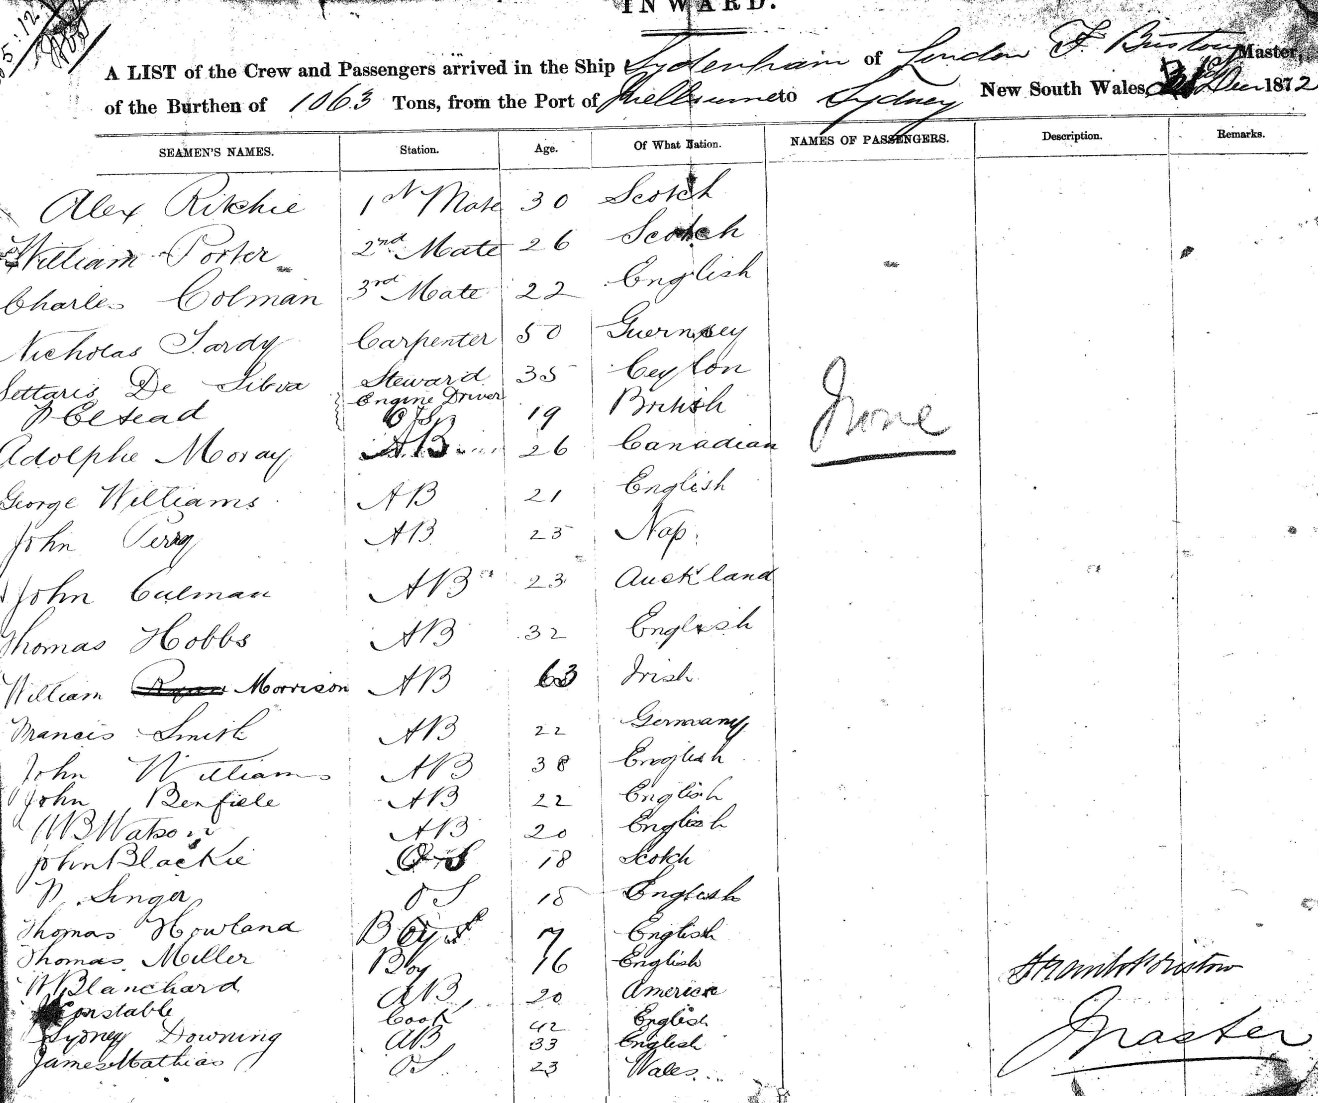 INWARD.
A LIST of the Crew and Passengers arrived in the Ship Sydenham of London F. Bristow Master,
of the Burthen of 1063 Tons, from the Port of Melbourne to Sydney New South Wales, 31st Decr 1872
SEAMEN'S NAMES. Station. Age. Of What Nation. NAMES OF PASSENGERS. Description. Remarks.
Alex Ritchie 1st Mate 30 Scotch
William Porter 2nd Mate 26 Scotch
Charles Colman 3rd Mate 22 English
Nicholas Tardy Carpenter 50 Guernsey
Settaris De Silva Steward 35 Ceylon
Engine Driver
Elstead O S 19 British
None
Adolphe Moray AB 26 Canadian
George Williams AB 21 English
John Perry AB 25 Nap.
John Culman AB 23 Auckland
Thomas Hobbs AB 32 English
William Ryan Morrison AB 63 Irish
Francis Smith AB 22 Germany
John Williams AB 38 English
John Benfiele AB 22 English
WB Watson AB 20 English
John Blackie OS 18 Scotch
W. Singer OS 18 English
Thomas Howland Boy English
Thomas Miller Boy 16 English
W Blanchard AB, 20 America
Frank Bristow
Constable Cook 42 English
Sydney Downing AB 33 English
Master
James Mathias OS 23 Wales